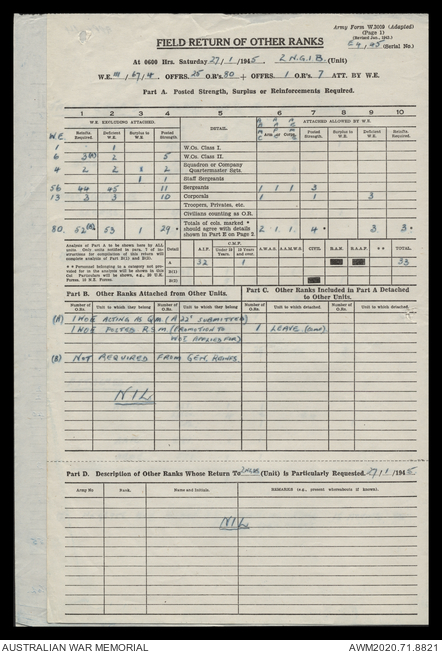 Army Form W.3009 (Adapted)
(Page 1)
(Revised Jan., 1943.)
(Serial No.)
FIELD RETURN OF OTHER RANKS
At 0600 Hrs. Saturday 27/1/1945 2 N.G.I.B. (Unit)
W.E. III/67/4 OFFRS. 25 O.R's. 80 + OFFRS. 1 O.R's. 7 ATT. BY W.E.
Part A. Posted Strength, Surplus or Reinforcements Required.
1 2 3 4 5 6 7 8 9 10
W.E. EXCLUDING ATTACHED. ATTACHED ALLOWED BY W.E.
W.E. Reinfts. Required Deficient W.E. Surplus to W.E. Posted Strength DETAIL Arms or Corps. Posted Strength Surplus to W.E. Deficient W.E. Reinfts. Required
1 1 1 W.Os. Class I.
6 3(A) 2 5 W.Os. Class II.
4 2 2 1 2 Squadron or Company Quartermaster Sgts.
1 1 Staff Sergeants
56 44 45 11 Sergeants 1 1 1 3
13 3 3 10 Corporals 1 1 3
Troopers, Privates, etc.
Civilians counting as O.R.
80 52(A) 53 1 29 * Totals of cols. marked * should agree with details shown in Part E on Page 2. 2 1 1 4 * 3 3 *
Analysis of Part A to be shown here by ALL units. Detail A.I.F. C.M.F. Under 19 Years 19 Years and over. A.W.A.S. A.A.M.W.S. CIVIL R.A.N. R.A.A.F. * * TOTAL
A 32 1 33
B(1)
B(2)
Part B. Other Ranks Attached from Other Units.
Part C. Other Ranks Included in Part A Detached to Other Units.
Number of O.Rs. Unit to which they belong Number of O.Rs. Unit to which they belong Number of O.Rs. Unit to which they belong Number of O.Rs. Unit to which they belong
(A) 1 NOE ACTING AS Q.M. (A 22' SUBMITTED)
1 NOE POSTED R.S.M. (PROMOTION TO 1 LEAVE
WO1 APPLIED FOR)
(A) NOT REQUIRED FROM GEN. REINFS
NIL
Part D. Description of Other Ranks Whose Return To 2 NGIB (Unit) is Particularly Requested. 27/1/1945
Army No Rank. Name and Initials. REMARKS (e.g., present whereabouts if known).
NIL
AUSTRALIAN WAR MEMORIAL AWM2020.71.8821